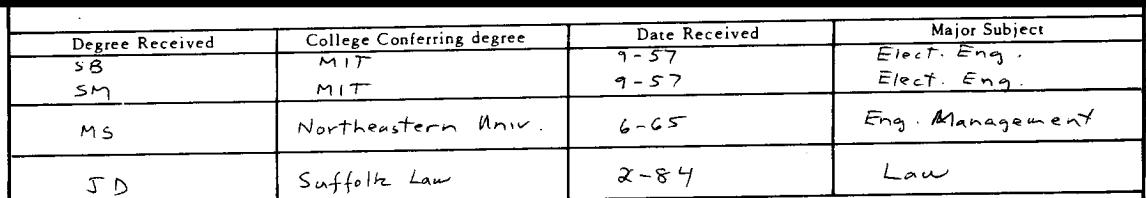 Degree Received College Conferring degree Date Received Major Subject
SB MIT 9-57 Elect. Eng.
SM MIT 9-57 Elect. Eng.
MS Northeastern Univ. 6-65 Eng. Management
JD Suffolk Law 2-84 Law